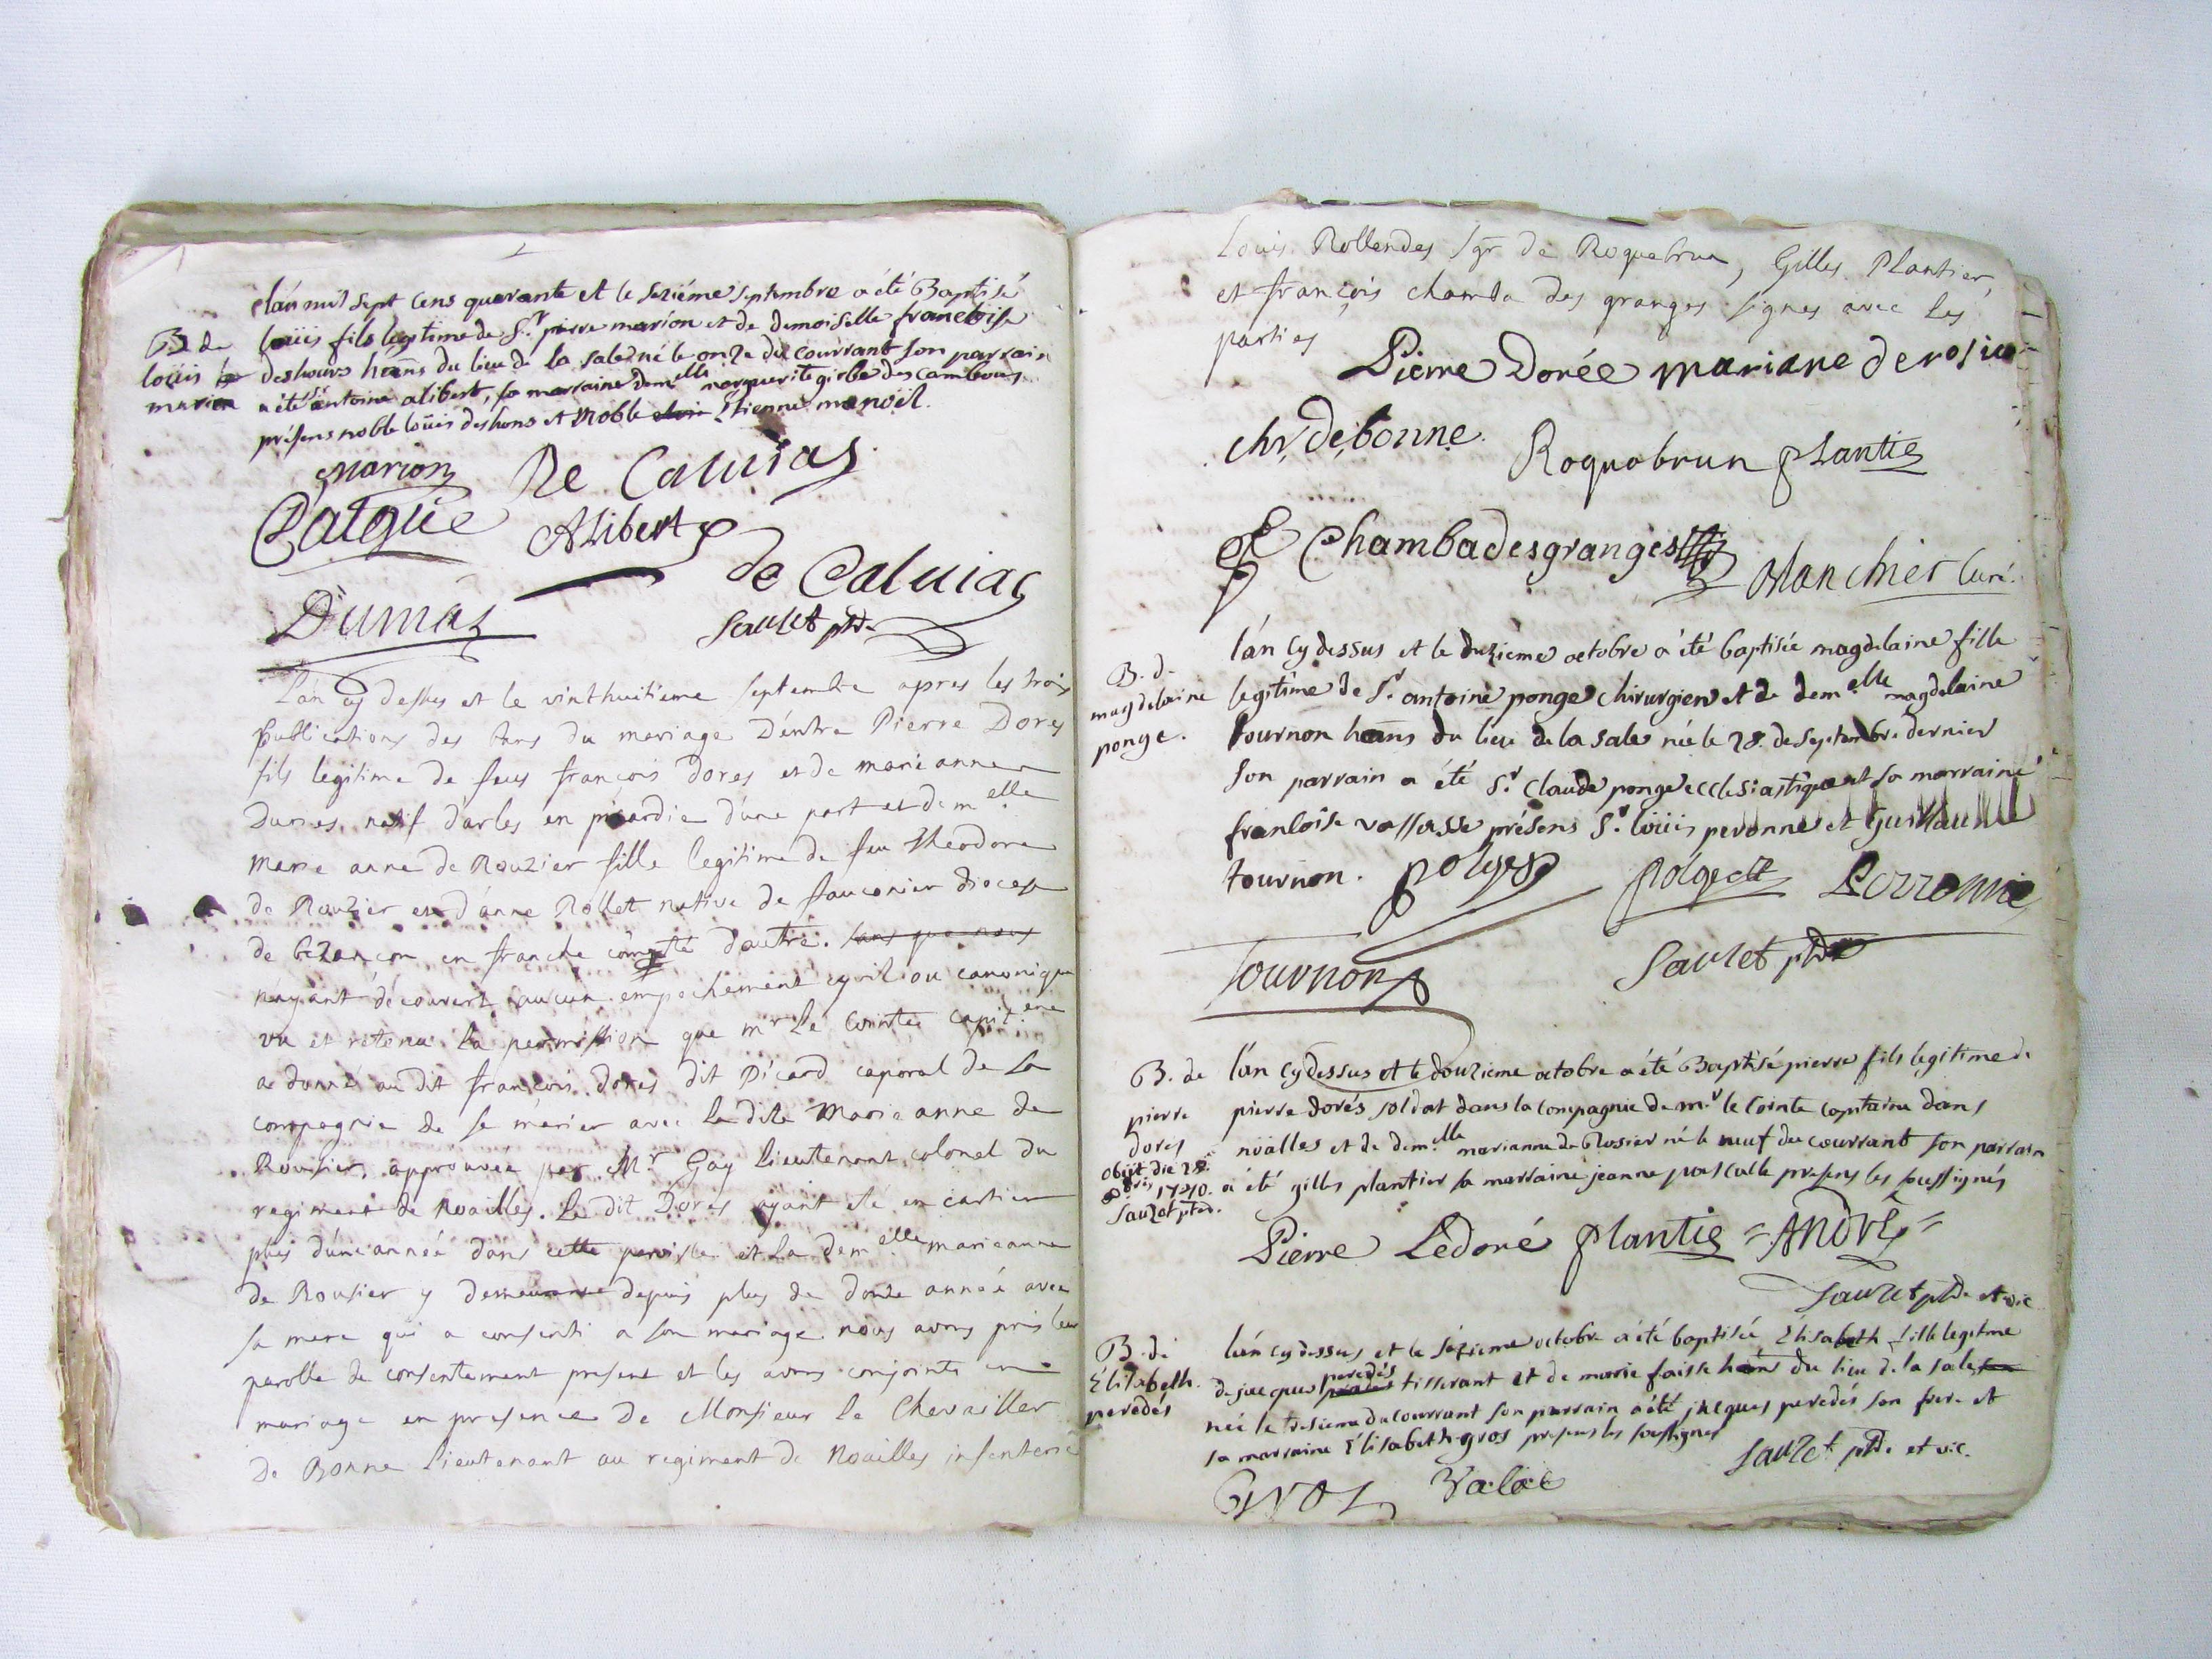 L'án mil sept cens quarante et le seziéme septembre a été Baptisé
B. de
louis
marion
loüis fils legitime de Sr. pierre marion et de demoiselle francoise
deshours háns du lieu de la sale né le onze du courrant son parrain
a été sr antoine alibert, sa marraine demelle marguerite girbe des cambous
présens noble loüis deshons et Noble Etienne manoël.
marion
De Calvias
Alibert
de Calviac
Dumas
Sauzet ptre
L'an cy dessus et le vinthuitieme septembre apres les trois
publications des bans du mariage D'éntre Pierre Dores
fils legitime de feus françois dores et de marie anne
natif darles en picardie d'une part et demelle
Marie anne de Rouzier fille legitime de feu theodore
de Rouzier et d'ánne Rollet native de fauconier diocese
de bezancon en franche comté d'autre. sans que nous
n'ayant découvert aucun empechement cyvil ou canonique
vu et retenu la permission que mr Le Cointe capitene
a donné au dit françois dores dit Picard caporal de la
compagnie de se marier avec la dite Marie anne de
Rousier, approuvée par Mr Gay Lieutenant colonel du
regiment de Noailles. Le dit Dores ayant été en cartier
plus d'une année dans cette parroisse et la demelle marieanne
de Rousier y demeurante depuis plus de douze année avec
sa mere qui a consenti a son mariage nous avons pris leur
parolle de consentement present et les avons conjoints en
mariage en presence de Monsieur le Chevailler
de Bonne Lieutenant au regiment de Noailles infenterie
Louis Rollendes sgr de Roquebrun, Gilles Plantier,
et françois chamba des granges signes avec les
parties
Pierre Dorée mariane derosie
chr, de, bonne.
Roquebrun plantie
Chambadesgranges
Manchier Curé.
B. de
magdelaine
ponge.
l'án cy dessus et le duziéme octobre a été baptisée magdelaine fille
legitime de Sr. antoine ponge chirurgien et de demelle magdelaine
tournon háns du lieu de la sale née le 28. de septembre dernier
son parrain a été Sr. Claude ponge ecclesiastique et sa marraine
francoise vassasse présens Sr. loüis peronne et Guillaume
tournon.
polge
polge
Perronne
Tournon
Sauzet ptre
B. de
pierre
dores
obiit die 28.
8bris 1740.
Sauzet ptre.
l'án cy dessus et le douzieme octobre a été Baptisé pierre fils legitime de
pierre dorés soldat dans la compagnie de mr. le Cointe capitaine dans
noalles et de demelle marianne de Rosier né le neuf du courrant son parrain
a été gilles plantier sa marraine jeanne pascalle presens les soussignés
Pierre Ledoré plantie = ANdVE =
Sauzet ptre et vic
B. de
Elisabeth.
peredés
l'én cy dessus et le séziéme octobre a été baptisée Elisabeth fille legitme
de jacques peredés tisserant et de marie faisse háns du lieu de la sale
née le tresieme du courrant son parrain a été jacques peredés son frere et
sa marraine Elisabeth gros presens les soussignes
Sauzet ptre et vic.
GroS
Valat